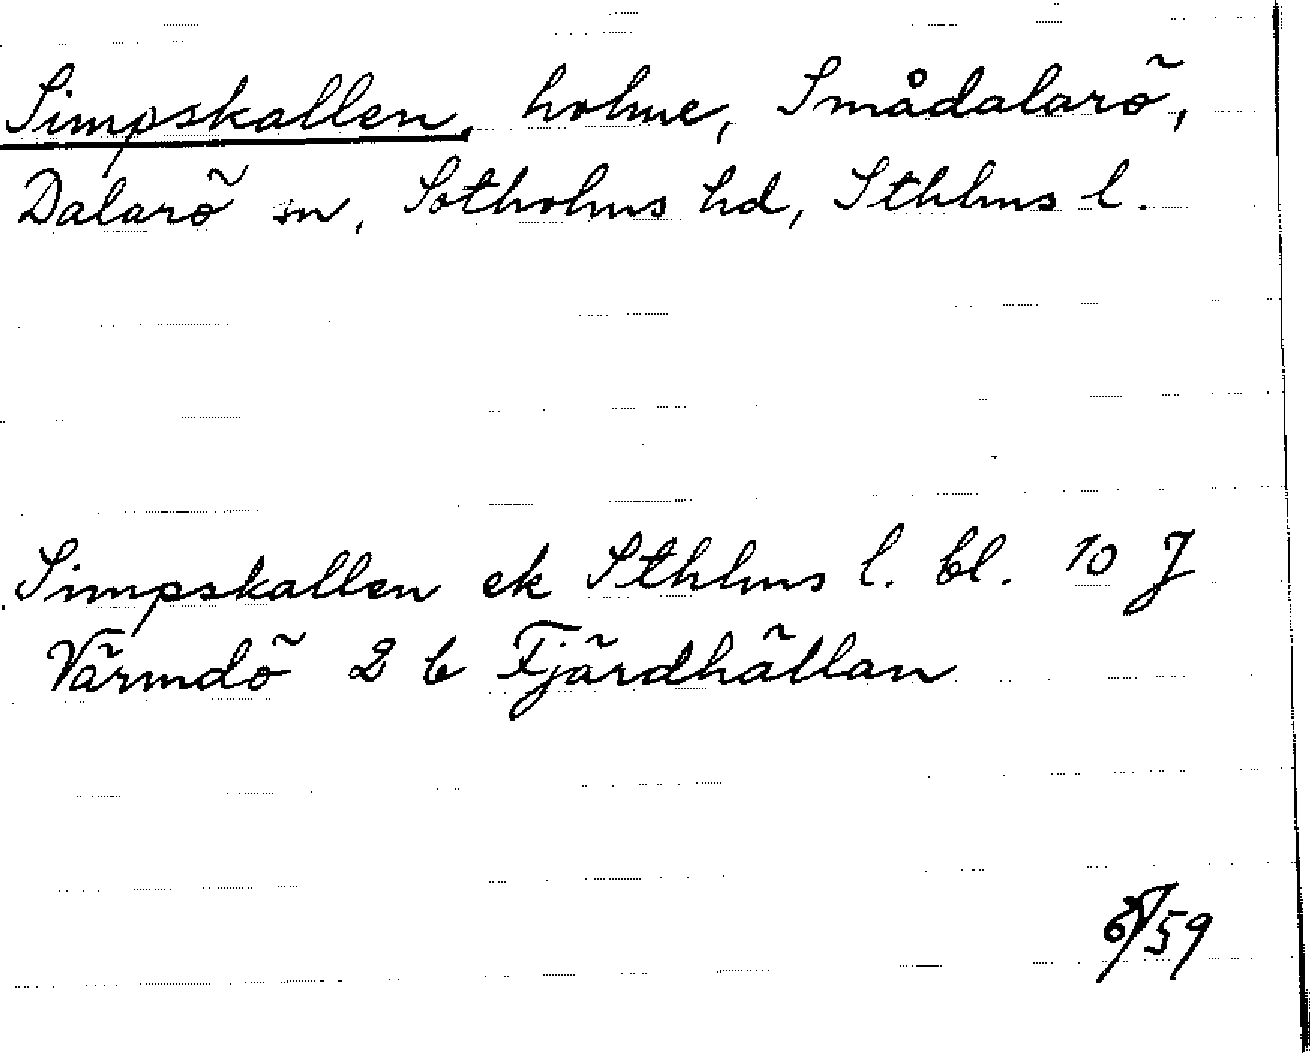 Simpskallen, holme, Smådalarö,
Dalarö sn, Sotholms hd, Sthlms l.
Simpskallen ek Sthlms l. bl. 10 J
Värmdö 2 b Fjärdhällan
/59